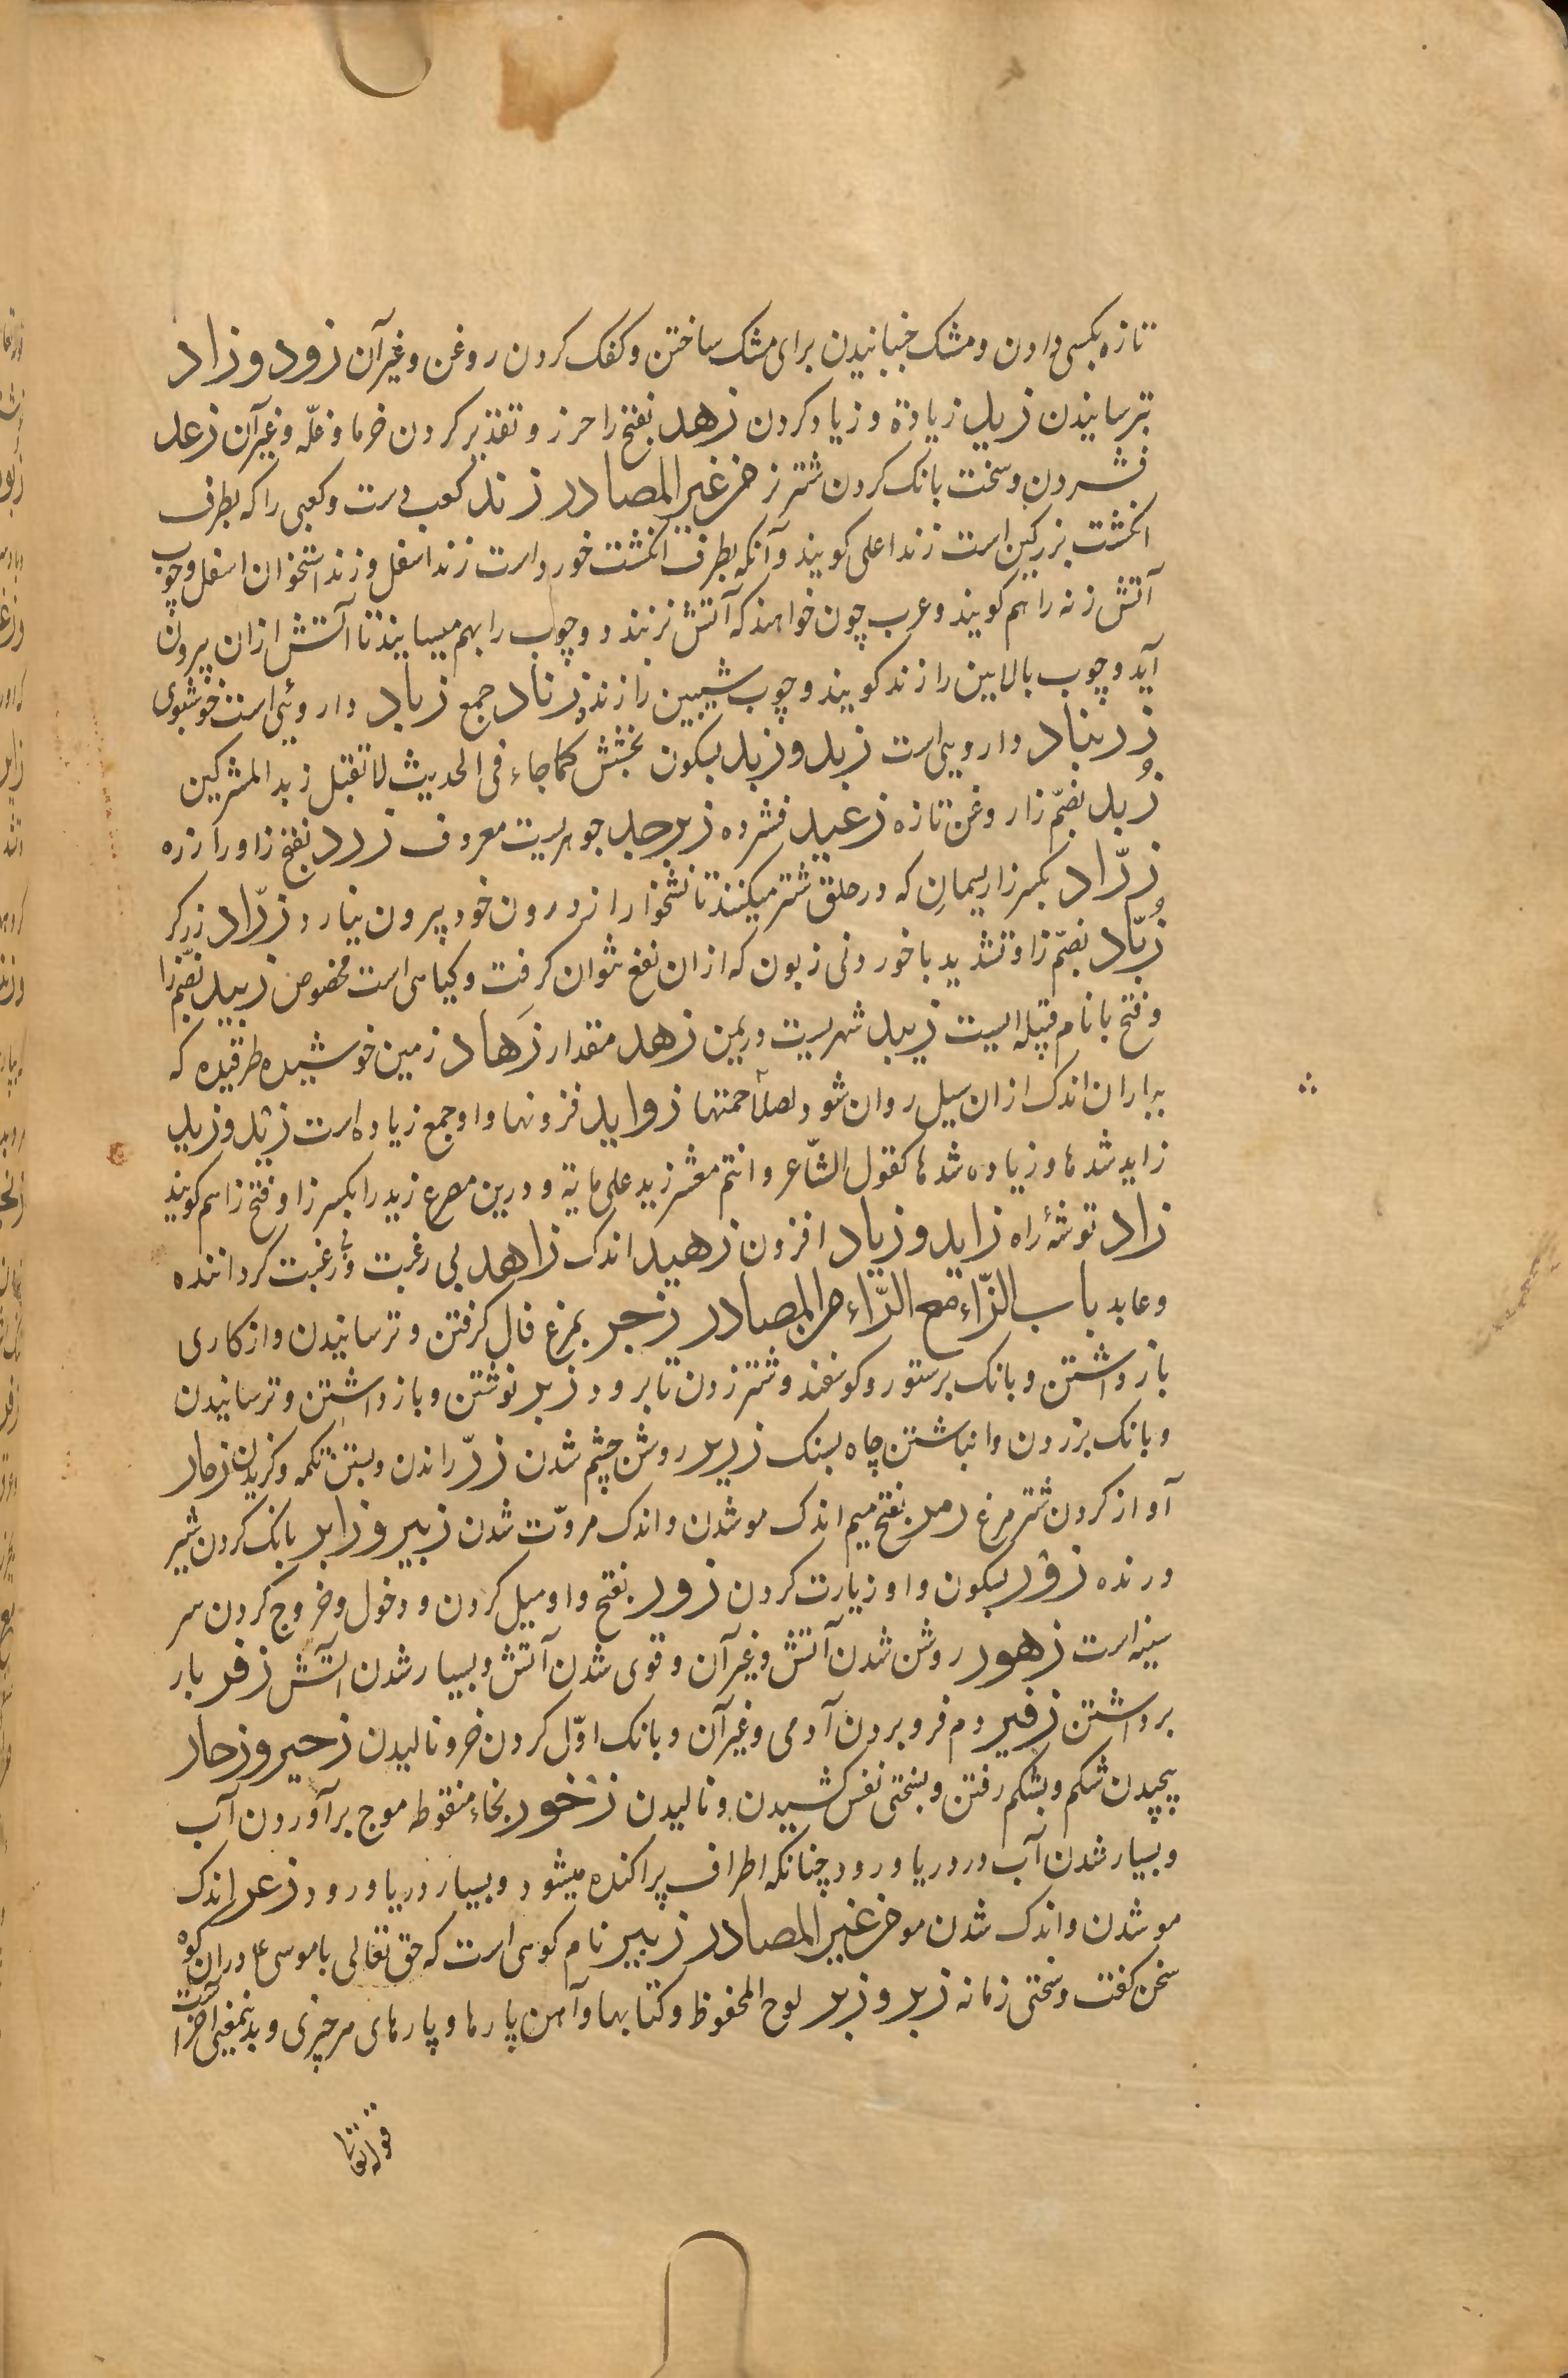 تازه بکسی دادن و مشک جنبانیدن برای مشک ساختن و کفک کردن روغن و غیر آن زود و زاد
ترسانیدن زید زیادة و زیاد کردن زهد بفتح زا حرز و تقدیر کردن خرما و غلّه و غیر آن زغد
فشردن و سخت بانک کردن شتر من غیر المصادر زند کعب دست و کعبی را که بطرف
انکشت بزرکین است زند اعلی کویند و آنکه بطرف انکشت خورد است زند اسفل و زند استخوان اسفل و چوب
آتش زنه را هم کویند و عرب چون خواهند که آتش زنند دو چوب را بهم میسایند تا آتش ازان بیرون
آید و چوب بالایین را زند کویند و چوب شیبین را زنده زناد جمع زباد داروئی است خوشبوی
زرنباد دارویی است زبد و زبد بسکون بخشش کما جاء فی الحدیث لا تقبل زبد المشرکین
زُبد بضمّ زا روغن تازه زغید فشرده زبرجد جوهریست معروف زرد بفتح زا و را زره
زرّاد بکسر زا ریسمان که در حلق شتر میکنند تا نشخوار از درون خود بیرون نیارد زرّاد زرکر
زُبّاد بضمّ زا و تشدید با خوردنی زبون که ازان نفع نتوان کرفت و کیاهی است مخصوص زبید بضمّ زا
و فتح با نام قبیله ایست زبید شهریست در یمن زهد مقدار زَهاد زمین خوشیده طرقیده که
بباران اندک ازان سیل روان شود لصلاحمتها زواید فزونها و او جمع زیاده است زئد و زید
زاید شدها و زیاده شدها کقول الشّاعر و انتم معشر زید علی مایة و درین مصرع زید را بکسر زا و فتح زا هم کویند
زاد توشهٔ راه زاید و زیاد افزون زهید اندک زاهد بی رغبت و رغبت کرداننده
و عابد باب الزّاء مع الرّاء من المصادر زجر بمرغ فال کرفتن و ترسانیدن و از کاری
باز داشتن و بانک بر ستور و کوسفند و شتر زدن تا برود زبر نوشتن و باز داشتن و ترسانیدن
و بانک بر زدن و انباشتن چاه بسنک زریر روشن چشم شدن زرّ راندن و بستن تکمه و کزیدن زمار
آواز کردن شترمرغ زمر بفتح میم اندک مو شدن و اندک مروّت شدن زبیر و زابر بانک کردن شیر
درنده زوْر بسکون واو زیارت کردن زور بفتح واو میل کردن و دخول و خروج کردن سر
سینه است زهور روشن شدن آتش و غیر آن و قوی شدن آتش و بسیار شدن آتش زفر بار
برداشتن زفیر دم فرو بردن آدمی و غیر آن و بانک اوّل کردن خر و نالیدن زحیر و زحار
پیچیدن شکم و بشکم رفتن و بسختی نفس کشیدن و نالیدن زخور بخاء منقوطه موج برآوردن آب
و بسیار شدن آب در دریا و رود چنانکه اطراف پراکنده میشود و بسیار دریا و رود زعر اندک
مو شدن و اندک شدن مو من غیر المصادر زبیر نام کوهی است که حق تعالی با موسی ع دران کوه
سخن کفت و سختی زمانه زبر و زبر لوح المحفوظ و کتابها و آهن پارها و پارهای هر چیزی و بدینمعنی اخیر است
قوله تعالی